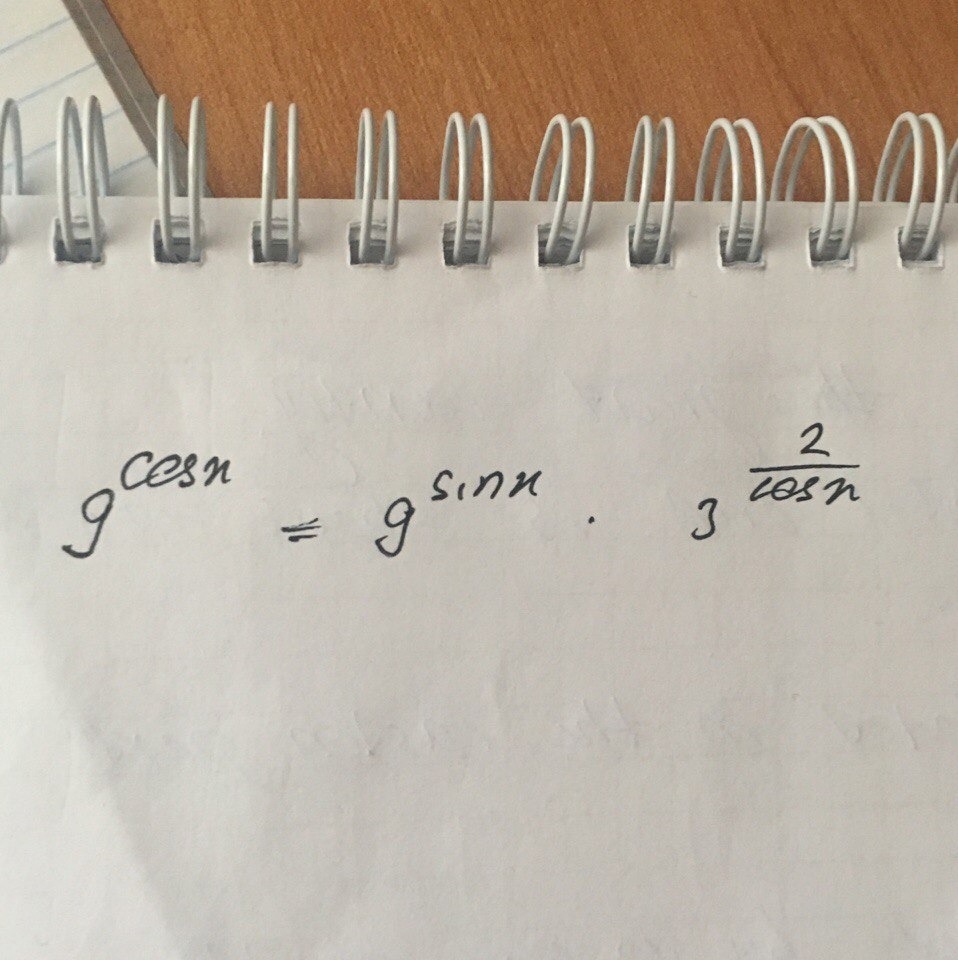 9^{cosx} = 9^{sinx} · 3^{\frac{2}{cosx}}